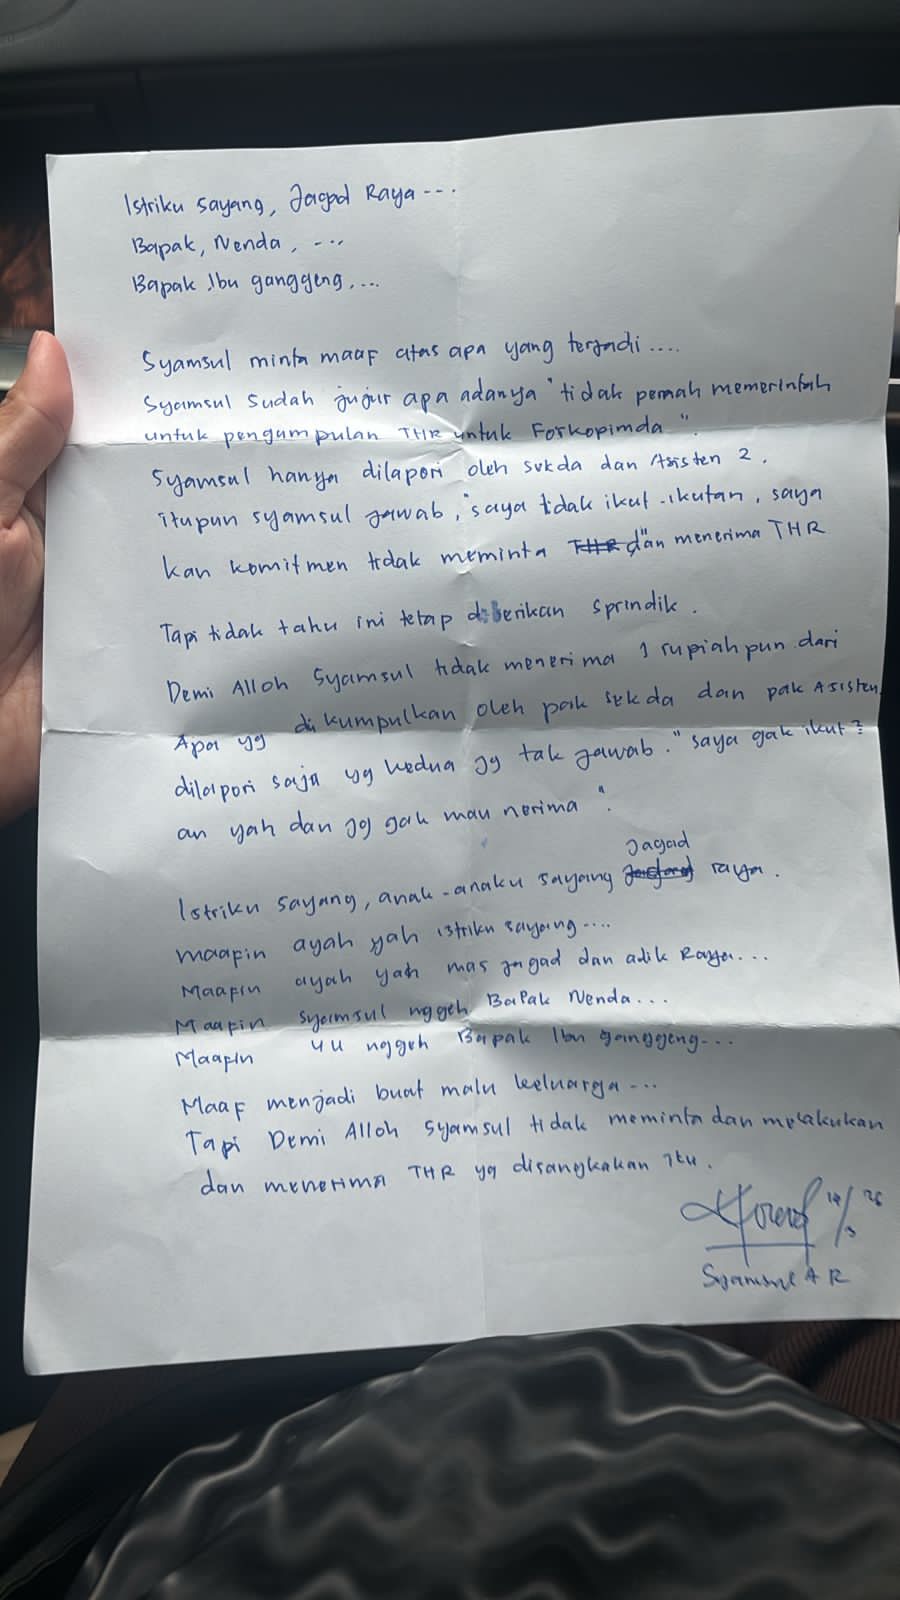 Istriku sayang, Jagad Raya ---
Bapak, Nenda, ---
Bapak Ibu ganggeng, ...
Syamsul minta maaf atas apa yang terjadi ....
Syamsul sudah jujur apa adanya "tidak pernah memerintah
untuk pengumpulan THR untuk Forkopimda".
Syamsul hanya dilapori oleh sekda dan Asisten 2.
itupun syamsul jawab, "saya tidak ikut-ikutan, saya
kan komitmen tidak meminta THR dan menerima THR
Tapi tidak tahu ini tetap diberikan sprindik.
Demi Alloh Syamsul tidak menerima 1 rupiahpun dari
Apa yg di kumpulkan oleh pak sekda dan pak Asisten,
dilapori saja yg kedua jg tak jawab. "saya gak ikut2
an yah dan jg gak mau nerima".
Jagad
Istriku sayang, anak-anaku sayang raya.
maafin ayah yah istriku sayang....
Maafin ayah yah mas Jagad dan adik Raya...
Maafin Syamsul nggeh Bapak Nenda...
Maafin nggeh Bapak Ibu ganggeng---
Maaf menjadi buat malu keluarga ---
Tapi Demi Alloh Syamsul tidak meminta dan melakukan
dan menerima THR yg disangkakan itu.
Syamsul A R